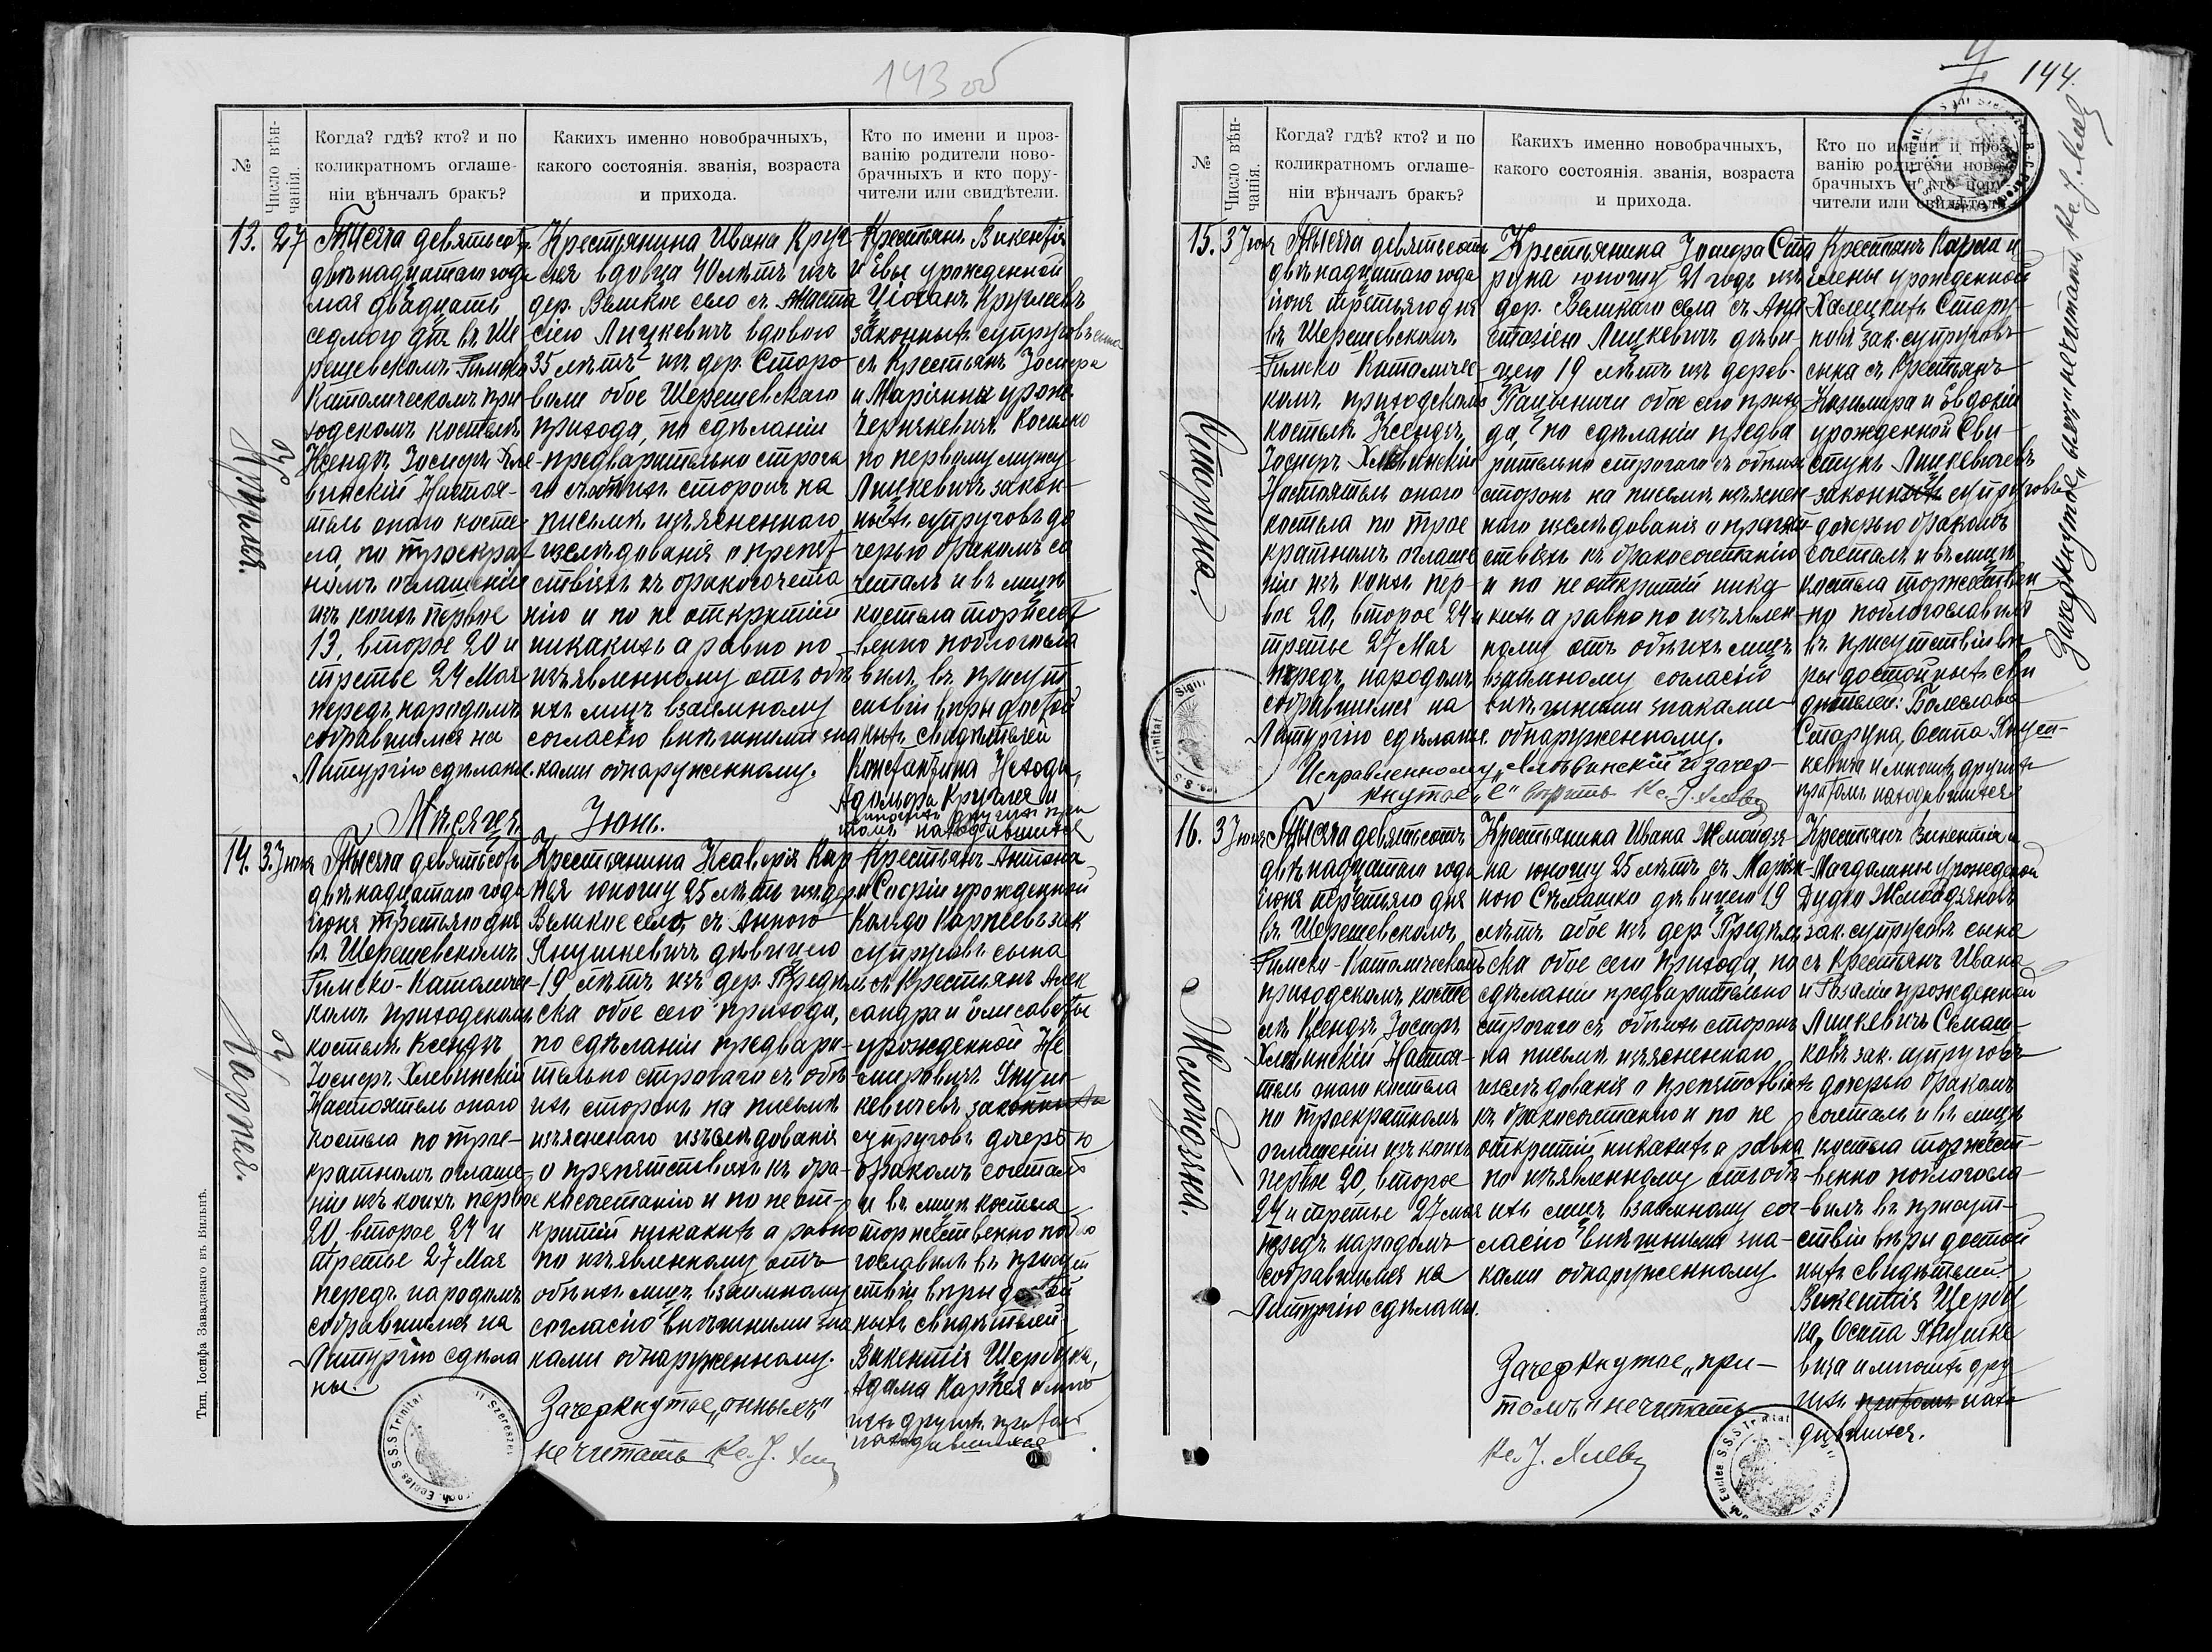 143 об
№
Число вѣн-
чанія.
Когда? гдѣ? кто? и по
коликратномъ оглаше-
ніи вѣнчалъ бракъ?
Какихъ именно новобрачныхъ,
какого состоянія. званія, возраста
и прихода.
Кто по имени и проз-
ванію родители ново-
брачныхъ и кто пору-
чители или свидѣтели.
13.
27
Круглея.
Тысяча девятьсотъ
двѣнадцатаго года
мая двадцать
седмого дня въ Ше
решевскомъ Римско
Католическомъ при
ходскомъ костелѣ
Ксендзъ Іосифъ Хле
винскій Настоя-
тель онаго косте
ла, по троекрат
номъ оглашеніи
изъ коихъ первое
13, второе 20 и
третье 24 Мая
передъ народомъ
собравшимся на
Литургію сдѣланы.
Крестьянина Ивана Круг-
лея вдовца 40 лѣтъ изъ
дер. Великое село съ Анаста
сіею Лицкевичъ вдовою
35 лѣтъ изъ дер. Сторо
воли обое Шерешевскаго
прихода, по сдѣланіи
предварительно строга
го съ обѣихъ сторонъ на
письмѣ изъясненнаго
изслѣдованія о препят
ствіяхъ къ бракосочета
нію и по не открытіи
никакихъ а равно по
изъявленному отъ обѣ
ихъ лицъ взаимному
согласію внѣшними зна
ками обнаруженному.
Крестьянъ Викентія
и Евы урожденной
Ціоханъ Круглеевъ
законныхъ супруговъ сына
съ Крестьянъ Іосифа
и Маріанны урожд.
Чернякевичъ Косинко
по первому мужу
Лицкевичъ закон-
ныхъ супруговъ до
черью бракомъ со
четалъ и въ лицѣ
костела торжест
венно поблагосла
вилъ, въ присут
ствіи вѣры достой
ныхъ свидѣтелей
Константина
Адольфа Круглея и
многихъ другихъ при
томъ находившихся
Мѣсяцъ Іюнь.
14.
3. Іюня
Карпея.
Тысяча девятьсотъ
двѣнадцатаго года
іюня третьяго дня
въ Шерешевскомъ
Римско-Католичес
комъ приходскомъ
костелѣ Ксендзъ
Іосифъ Хлевинскій
Настоятель онаго
костела по трое-
кратномъ оглаше-
ніи изъ коихъ первое
20, второе 24 и
третье 27 Мая
передъ народомъ
собравшимся на
Литургію сдѣла
ны.
Крестьянина Ксаверія Кар
пея юношу 25 лѣтъ изъ дер.
Великое село, съ Анною
Янушкевичъ дѣвицею
19 лѣтъ изъ дер. Предѣль
ска обое сего прихода,
по сдѣланіи предвари-
тельно строгаго съ обѣ
ихъ сторонъ на письмѣ
изъясненаго изслѣдованія
о препятствіяхъ къ бра-
косочетанію и по не от-
крытіи никакихъ а равно
по изъявленному отъ
обѣихъ лицъ взаимному
согласію внѣшними зна
ками обнаруженному.
Зачеркнутое „онныхъ"
не читать Кс. І. Хлев
Крестьянъ Антона
и Софіи урожденной
Кольдо Карпеевъ зак
супруговъ сына
съ Крестьянъ Алек
сандра и Елисаветы
урожденной Не
мировичъ Януш-
кевичевъ законныхъ
супруговъ дочерью
бракомъ сочеталъ
и въ лицѣ костела
торжественно побла
гославилъ въ присут
ствіи вѣры достой
ныхъ свидѣтелей
Викентія Щербука,
Адама Карпея и мно
гихъ другихъ притомъ
находившихся
Тип. Іосифа Завадзкаго въ Вильнѣ.
144.
№
Число вѣн-
чанія.
Когда? гдѣ? кто? и по
коликратномъ оглаше-
ніи вѣнчалъ бракъ?
Какихъ именно новобрачныхъ,
какого состоянія. званія, возраста
и прихода.
Кто по имени и проз-
ванію родители ново-
брачныхъ и кто пору-
чители или свидѣтели.
15.
3 Іюня
Старуна.
Тысяча девятьсотъ
двѣнадцатаго года
іюня третьяго дня
въ Шерешевскомъ
Римско Католичес
комъ приходскомъ
костелѣ Ксендзъ
Іосифъ Хлѣвинскій
Настоятель онаго
костела по трое
кратномъ оглаше
ніи изъ коихъ пер-
вое 20, второе 24 и
третье 27 Мая
передъ народомъ
собравшимся на
Литургію сдѣланы.
Крестьянина Іосифа Ста
руна юношу 21 годъ изъ
дер. Великаго села съ Ана
стазіею Лицкевичъ дѣви-
цею 19 лѣтъ изъ дерев-
Пацыничи обое сего прихо
да, по сдѣланіи предва
рительно строгаго съ обѣихъ
сторонъ на письмѣ изъяснен
наго изслѣдованія о препят
ствіяхъ къ бракосочетанію
и по не открытіи ника
кихъ а равно по изъявлен-
ному отъ обѣихъ лицъ
взаимному согласію
внѣшними знаками
обнаруженному.
Исправленному „Хлѣвинскій" и зачер-
кнутое „е" вѣрить Кс. І. Хлевъ
Крестьянъ Карла и
Елены урожденной
Халецкихъ Стару-
новъ зак. супруговъ
сына съ Крестьянъ
Казимира и Евдокіи
урожденной Сви
стунъ Лицкевичевъ
законныхъ супруговъ
дочерью бракомъ
сочеталъ и въ лицѣ
костела торжествен
но поблагославилъ
въ присутствіи вѣ
ры достойныхъ сви
дѣтелей: Болеслава
Старуна, Осипа Януш-
кевича и многихъ другихъ
притомъ находившихся
Зачеркнутое „ныхъ" не читать Кс. І. Хлевъ
16.
3 Іюня
Жемойдзяна.
Тысяча девятьсотъ
двѣнадцатаго года
іюня третьяго дня
въ Шерешевскомъ
Римско-Католическомъ
приходскомъ косте
лѣ Ксендзъ Іосифъ
Хлевинскій Настоя-
тель онаго костела
по троекратномъ
оглашеніи изъ коихъ
первое 20, второе
24 и третье 27 мая
передъ народомъ
собравшимся на
Литургію сдѣланы.
Крестьянина Ивана Жемойдзя-
на юношу 25 лѣтъ съ Маріан-
ною Сѣмашко дѣвицею 19
лѣтъ обое изъ дер. Предѣль
ска обое сего прихода, по
сдѣланіи предварительно
строгаго съ обѣихъ сторонъ
на письмѣ изъясненнаго
изслѣдованія о препятствіяхъ
къ бракосочетанію и по не
открытіи никакихъ а равно
по изъявленному отъ обѣ
ихъ лицъ взаимному сог-
ласію внѣшними зна-
ками обнаруженному
Зачеркнутое „при-
томъ" не читать
Кс. І. Хлевъ
Крестьянъ Викентія и
Магдалины урожденой
Дудко Жемойдзяновъ
зак. супруговъ сына
съ Крестьянъ Ивана
и Розаліи урожденной
Лицкевичъ Сѣмаш-
ковъ зак. супруговъ
дочерью бракомъ
сочеталъ и въ лицѣ
костела торжест-
венно поблагосла-
вилъ въ присут-
ствіи вѣры достой
ныхъ свидѣтелей:
Викентія Щербу
ка, Осипа Янушке
вича и многихъ дру
гихъ притомъ нахо
дившихся.